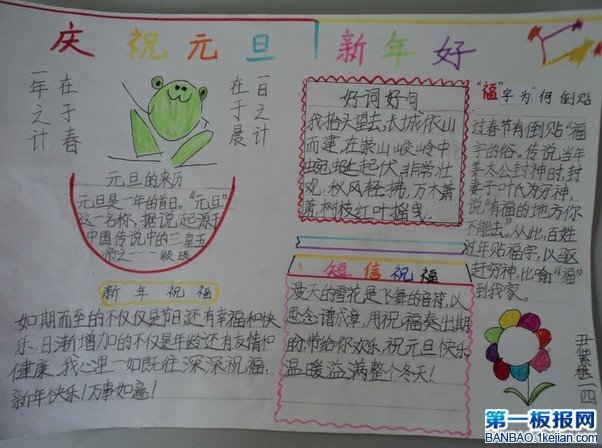 庆祝元旦
新年好
一年之计
在于春
一日之计
在于晨
元旦的来历
元旦是一年的首日。“元旦”
这一名称，据说起源于
中国传说中的三皇五
帝之一——颛顼
新年祝福
如期而至的不仅仅是节日还有幸福和快
乐、日渐增加的不仅是年龄还有友情和
健康、我心里一如既往，深深祝福，
新年快乐！万事如意！
好词好句
我抬头望去，长城依山
而建，在崇山峻岭中
蜿蜒起伏，非常壮
观。秋风轻拂，万木萧
萧树枝红叶摇曳。
短信祝福
漫天的雪花是飞舞的音符，以
思念谱成章，用祝福奏出期
盼带给你欢乐，祝元旦快乐
温暖溢满整个冬天！
“福”字为何倒贴
过春节有倒贴“福”
字的俗。传说当年
姜太公封神时，封
妻子叶氏为穷神，
说“有福的地方你
不能去。从此，百姓
过年贴福字，以驱
赶穷神，比喻“福”
到我家。
第一板报网
BANBAO.1kejian.com